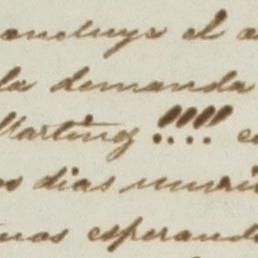 oncluye el a
la demanda
Martinez !!!! e
os dias murió
mos esperand